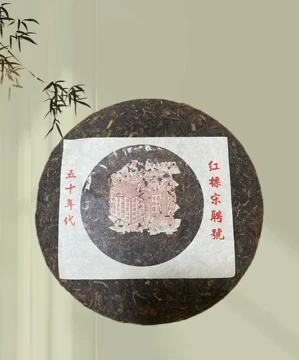 红標宋聘號
五十年代